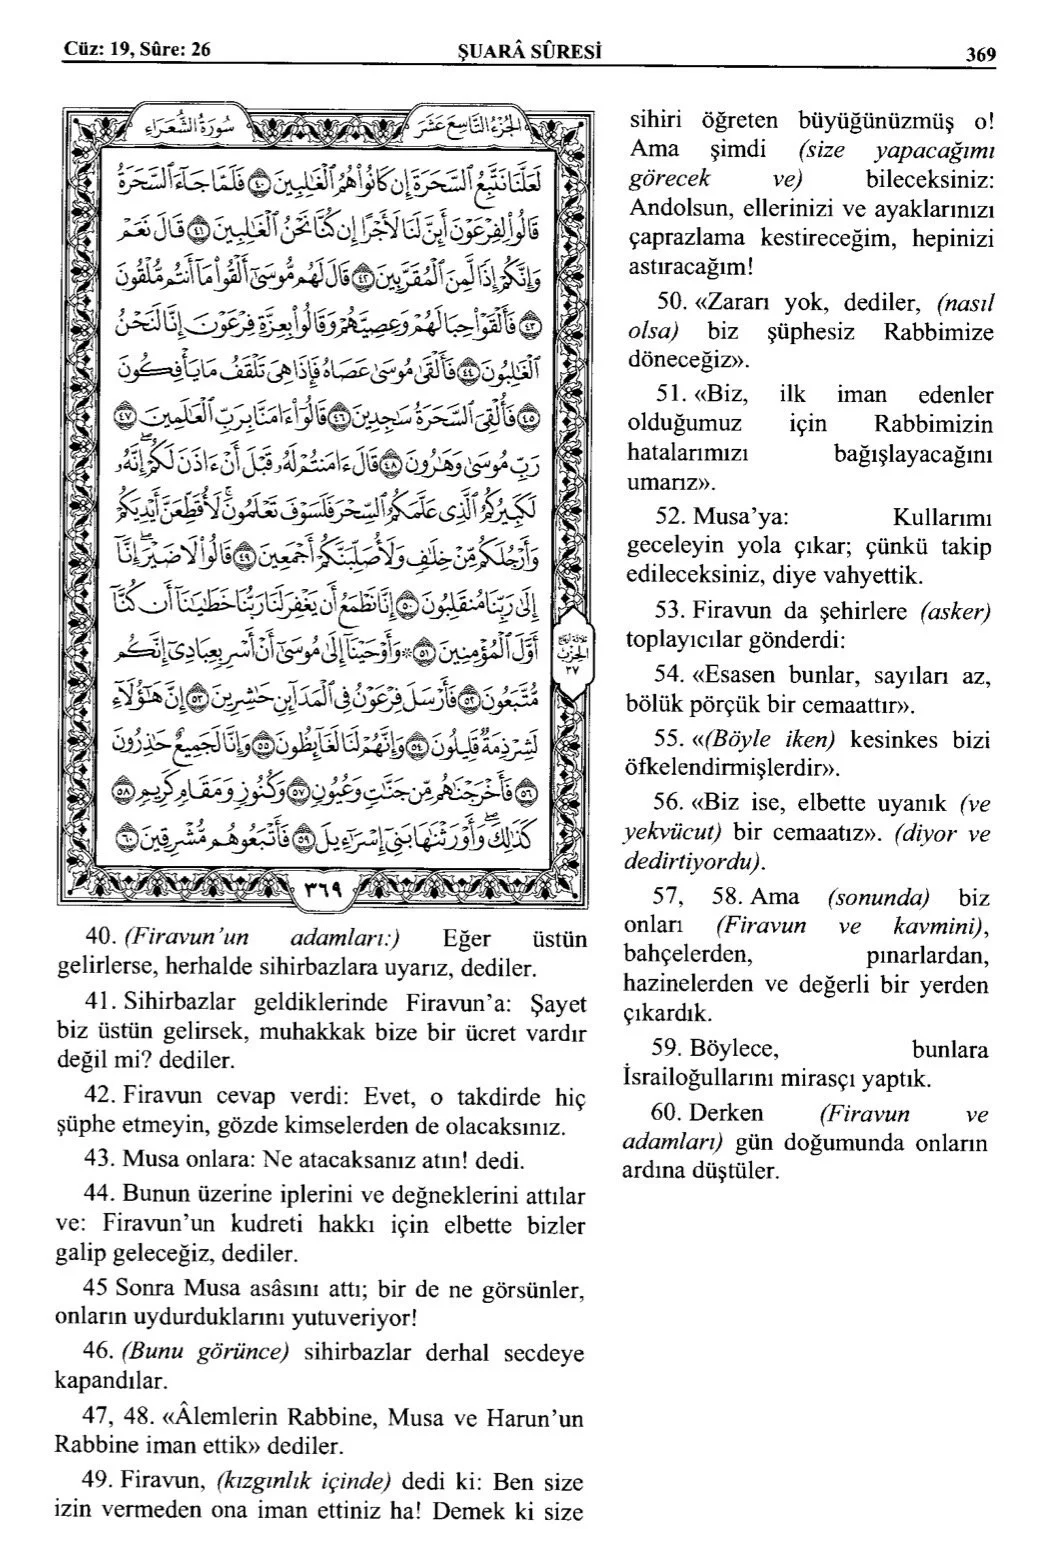 Cüz: 19, Sûre: 26
ŞUARÂ SÛRESİ
369
الجزء التاسع عشر
سورة الشعراء
لَعَلَّنَا نَتَّبِعُ السَّحَرَةَ إِن كَانُوا هُمُ الْغَالِبِينَ ٤٠ فَلَمَّا جَاءَ السَّحَرَةُ
قَالُوا لِفِرْعَوْنَ أَئِنَّ لَنَا لَأَجْرًا إِن كُنَّا نَحْنُ الْغَالِبِينَ ٤١ قَالَ نَعَمْ
وَإِنَّكُمْ إِذًا لَّمِنَ الْمُقَرَّبِينَ ٤٢ قَالَ لَهُم مُّوسَىٰ أَلْقُوا مَا أَنتُم مُّلْقُونَ
٤٣ فَأَلْقَوْا حِبَالَهُمْ وَعِصِيَّهُمْ وَقَالُوا بِعِزَّةِ فِرْعَوْنَ إِنَّا لَنَحْنُ
الْغَالِبُونَ ٤٤ فَأَلْقَىٰ مُوسَىٰ عَصَاهُ فَإِذَا هِيَ تَلْقَفُ مَا يَأْفِكُونَ
٤٥ فَأُلْقِيَ السَّحَرَةُ سَاجِدِينَ ٤٦ قَالُوا آمَنَّا بِرَبِّ الْعَالَمِينَ ٤٧
رَبِّ مُوسَىٰ وَهَارُونَ ٤٨ قَالَ آمَنتُمْ لَهُ قَبْلَ أَنْ آذَنَ لَكُمْ إِنَّهُ
لَكَبِيرُكُمُ الَّذِي عَلَّمَكُمُ السِّحْرَ فَلَسَوْفَ تَعْلَمُونَ لَأُقَطِّعَنَّ أَيْدِيَكُمْ
وَأَرْجُلَكُم مِّنْ خِلَافٍ وَلَأُصَلِّبَنَّكُمْ أَجْمَعِينَ ٤٩ قَالُوا لَا ضَيْرَ إِنَّا
إِلَىٰ رَبِّنَا مُنقَلِبُونَ ٥٠ إِنَّا نَطْمَعُ أَن يَغْفِرَ لَنَا رَبُّنَا خَطَايَانَا أَن كُنَّا
أَوَّلَ الْمُؤْمِنِينَ ٥١ * وَأَوْحَيْنَا إِلَىٰ مُوسَىٰ أَنْ أَسْرِ بِعِبَادِي إِنَّكُم
مُّتَّبَعُونَ ٥٢ فَأَرْسَلَ فِرْعَوْنُ فِي الْمَدَائِنِ حَاشِرِينَ ٥٣ إِنَّ هَٰؤُلَاءِ
لَشِرْذِمَةٌ قَلِيلُونَ ٥٤ وَإِنَّهُمْ لَنَا لَغَائِظُونَ ٥٥ وَإِنَّا لَجَمِيعٌ حَاذِرُونَ
٥٦ فَأَخْرَجْنَاهُم مِّن جَنَّاتٍ وَعُيُونٍ ٥٧ وَكُنُوزٍ وَمَقَامٍ كَرِيمٍ ٥٨
كَذَٰلِكَ وَأَوْرَثْنَاهَا بَنِي إِسْرَائِيلَ ٥٩ فَأَتْبَعُوهُم مُّشْرِقِينَ ٦٠
الحزب
٣٧
٣٦٩
40. (Firavun'un adamları:) Eğer üstün
gelirlerse, herhalde sihirbazlara uyarız, dediler.
41. Sihirbazlar geldiklerinde Firavun'a: Şayet
biz üstün gelirsek, muhakkak bize bir ücret vardır
değil mi? dediler.
42. Firavun cevap verdi: Evet, o takdirde hiç
şüphe etmeyin, gözde kimselerden de olacaksınız.
43. Musa onlara: Ne atacaksanız atın! dedi.
44. Bunun üzerine iplerini ve değneklerini attılar
ve: Firavun'un kudreti hakkı için elbette bizler
galip geleceğiz, dediler.
45 Sonra Musa asâsını attı; bir de ne görsünler,
onların uydurduklarını yutuveriyor!
46. (Bunu görünce) sihirbazlar derhal secdeye
kapandılar.
47, 48. «Âlemlerin Rabbine, Musa ve Harun'un
Rabbine iman ettik» dediler.
49. Firavun, (kızgınlık içinde) dedi ki: Ben size
izin vermeden ona iman ettiniz ha! Demek ki size
sihiri öğreten büyüğünüzmüş o!
Ama şimdi (size yapacağımı
görecek ve) bileceksiniz:
Andolsun, ellerinizi ve ayaklarınızı
çaprazlama kestireceğim, hepinizi
astıracağım!
50. «Zararı yok, dediler, (nasıl
olsa) biz şüphesiz Rabbimize
döneceğiz».
51. «Biz, ilk iman edenler
olduğumuz için Rabbimizin
hatalarımızı bağışlayacağını
umarız».
52. Musa'ya: Kullarımı
geceleyin yola çıkar; çünkü takip
edileceksiniz, diye vahyettik.
53. Firavun da şehirlere (asker)
toplayıcılar gönderdi:
54. «Esasen bunlar, sayıları az,
bölük pörçük bir cemaattır».
55. «(Böyle iken) kesinkes bizi
öfkelendirmişlerdir».
56. «Biz ise, elbette uyanık (ve
yekvücut) bir cemaatız». (diyor ve
dedirtiyordu).
57, 58. Ama (sonunda) biz
onları (Firavun ve kavmini),
bahçelerden, pınarlardan,
hazinelerden ve değerli bir yerden
çıkardık.
59. Böylece, bunlara
İsrailoğullarını mirasçı yaptık.
60. Derken (Firavun ve
adamları) gün doğumunda onların
ardına düştüler.